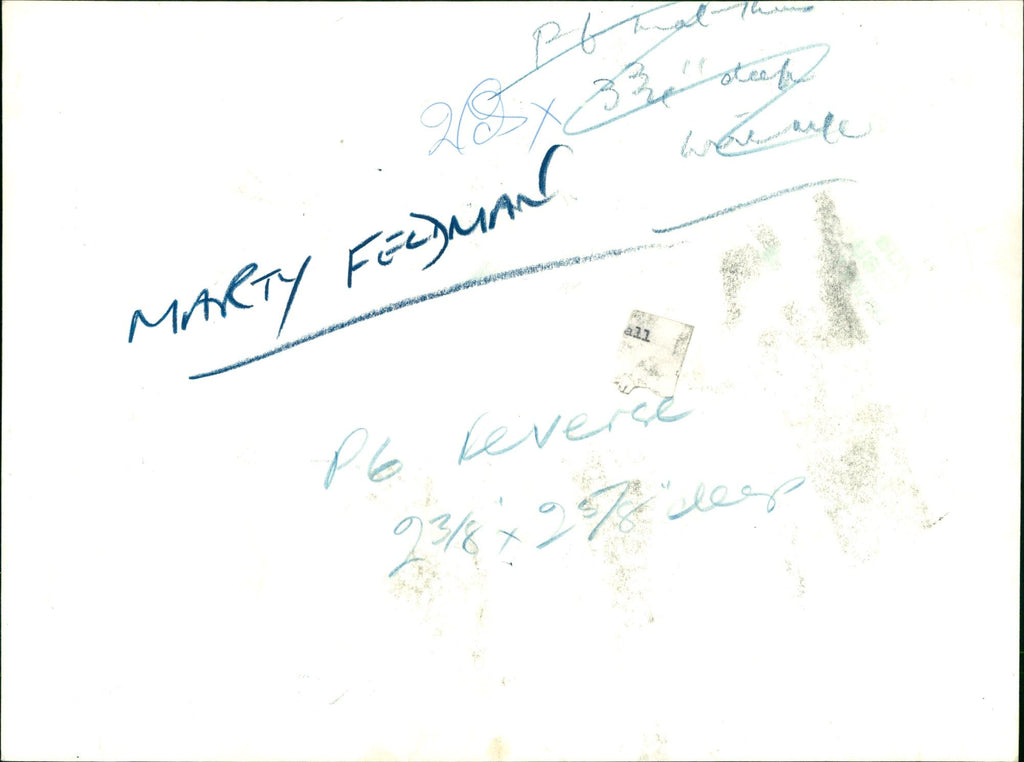 P6
28 x 3 3/4" deep
MARTY FELDMAN
all
P6 Reverse
2 3/8" x 2 5/8" deep